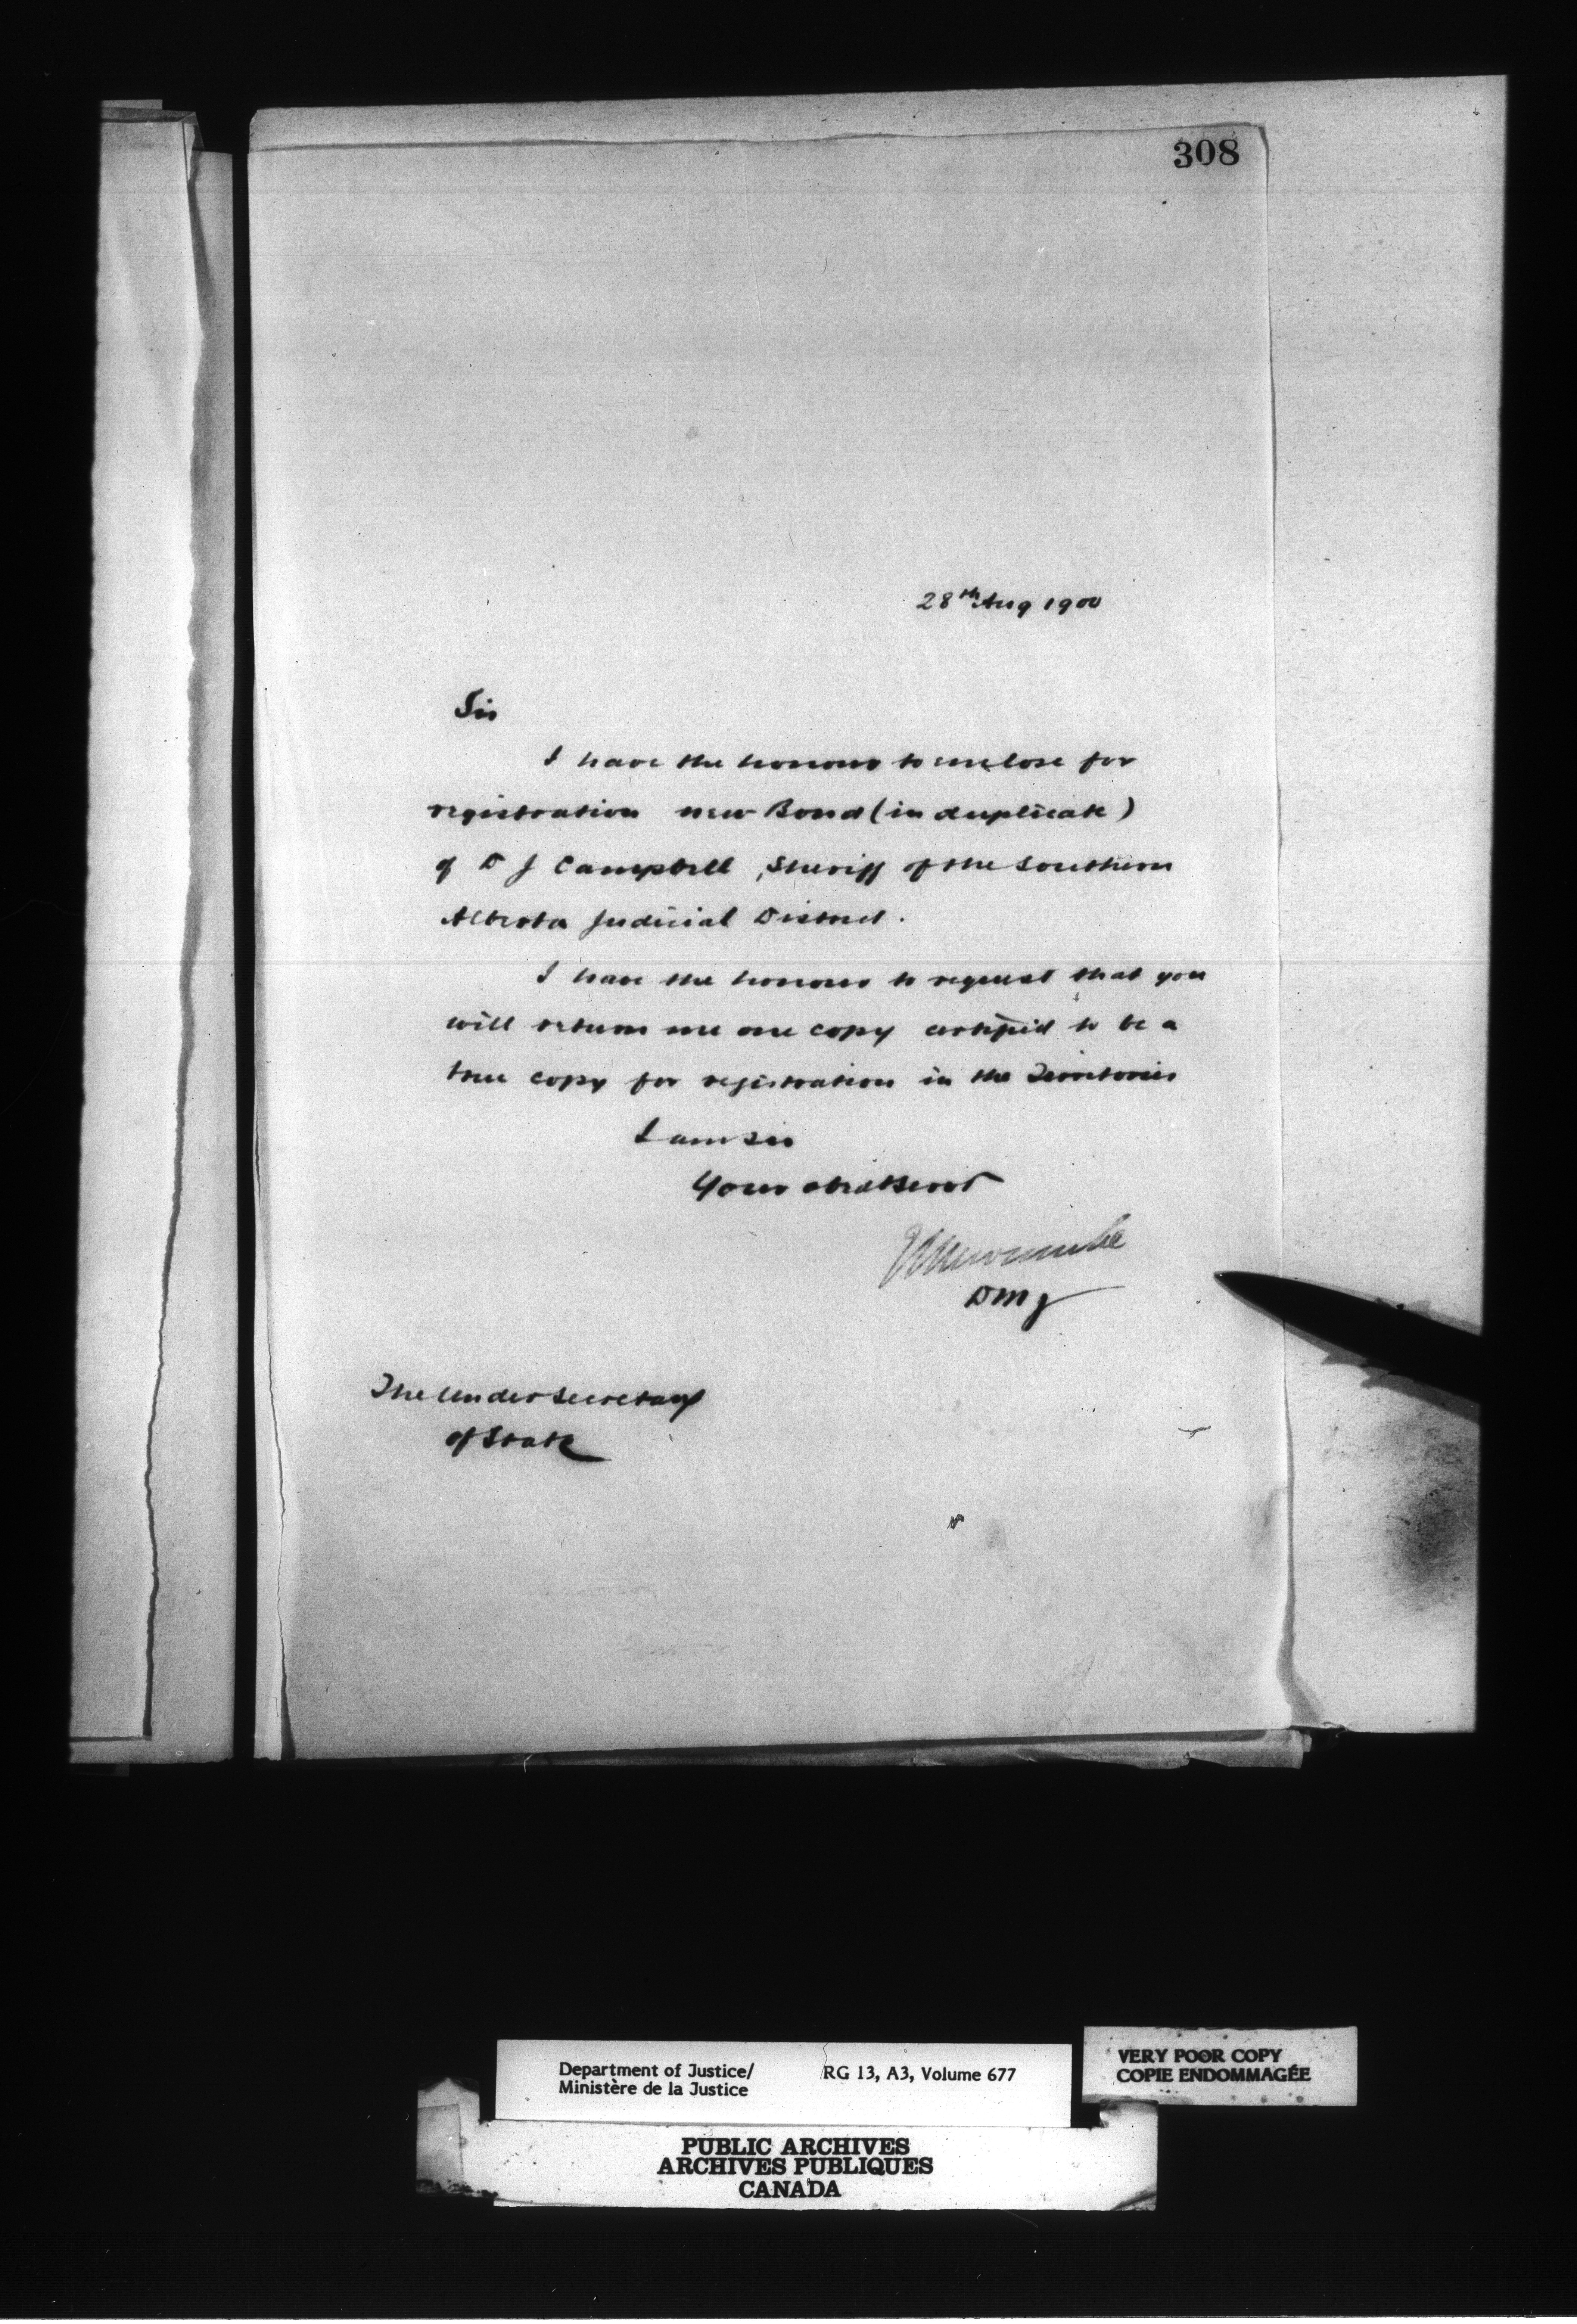 308
28th Aug 1900
Sir
I have the honour to enclose for
registration new Bond (in duplicate)
of D J Campbell, Sheriff of the Southern
Alberta Judicial District.
I have the honour to request that you
will return me one copy certified to be a
true copy for registration in the Territories
I am Sir
Your obedt Servt
Newcombe
DMJ
The Under Secretary
of State
Department of Justice/
Ministère de la Justice
RG 13, A3, Volume 677
VERY POOR COPY
COPIE ENDOMMAGÉE
PUBLIC ARCHIVES
ARCHIVES PUBLIQUES
CANADA